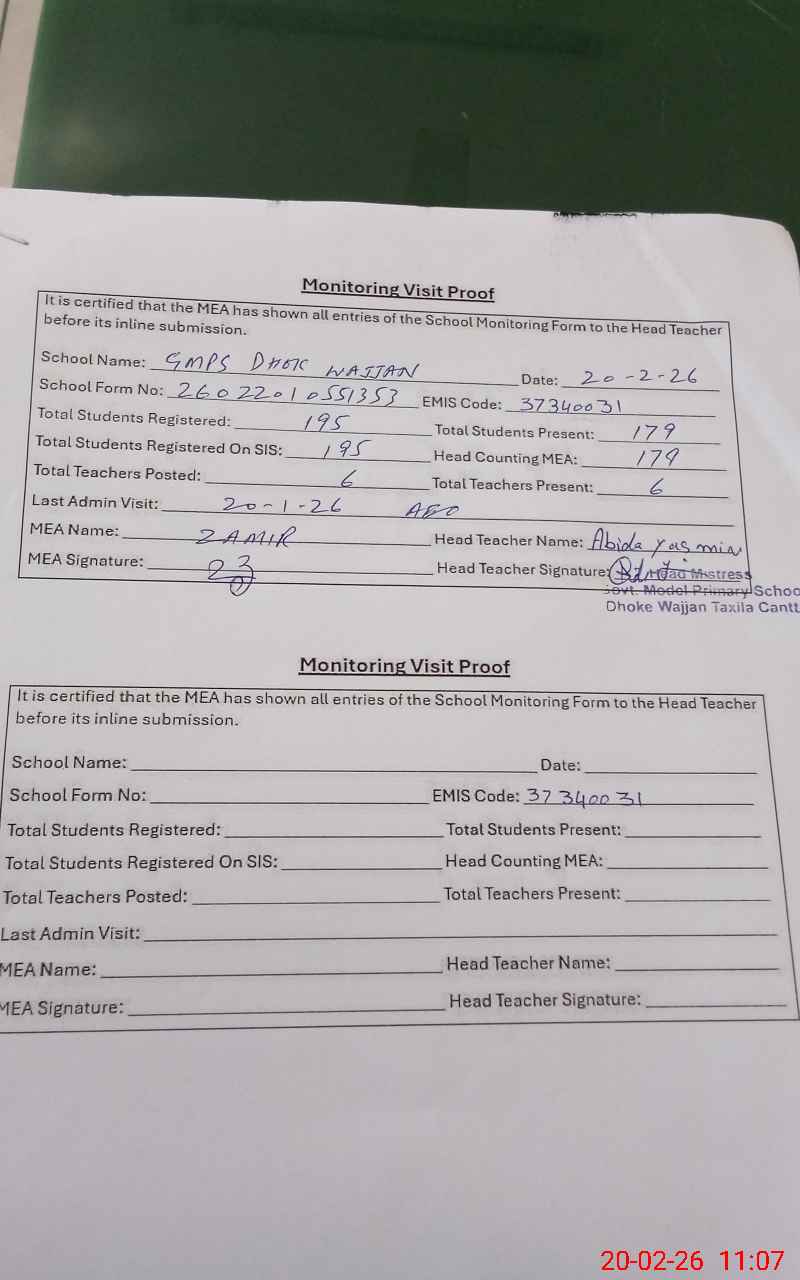 Monitoring Visit Proof
It is certified that the MEA has shown all entries of the School Monitoring Form to the Head Teacher
before its inline submission.
School Name: GMPS DHOK WAJJAN Date: 20-2-26
School Form No: 26022010551353 EMIS Code: 37340031
Total Students Registered: 195 Total Students Present: 179
Total Students Registered On SIS: 195 Head Counting MEA: 179
Total Teachers Posted: 6 Total Teachers Present: 6
Last Admin Visit: 20-1-26 AEO
MEA Name: ZAMIR Head Teacher Name: Abida yasmin
MEA Signature: Head Teacher Signature:
Head Mistress
Govt. Model Primary School
Dhoke Wajjan Taxila Cantt
Monitoring Visit Proof
It is certified that the MEA has shown all entries of the School Monitoring Form to the Head Teacher
before its inline submission.
School Name: Date:
School Form No: EMIS Code: 37340031
Total Students Registered: Total Students Present:
Total Students Registered On SIS: Head Counting MEA:
Total Teachers Posted: Total Teachers Present:
Last Admin Visit:
MEA Name: Head Teacher Name:
MEA Signature: Head Teacher Signature:
20-02-26 11:07